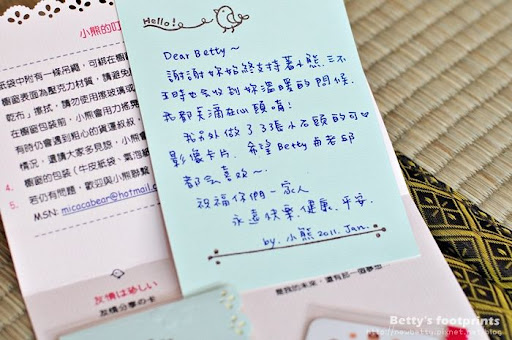 Hello!
Dear Betty～
謝謝妳始終支持著小熊.三不
五時也會收到妳溫暖的問候.
我都笑滴在心頭唷!
我另外做了3張小石頭的可♥
影像卡片.希望Betty和老邱
都會喜歡～.
祝福你們一家人
永遠快樂.健康.平安.
by.小熊 2011.Jan.
小熊的叮
紙袋中附有一條吊繩，可綁在櫥窗
櫥窗表面為壓克力材質，請避免
乾布」擦拭，請勿使用擦玻璃或
在櫥窗包裝前，小熊會用力搖晃
有時仍會遇到粗心的貨運叔叔，
情況，還請大家多見諒，小熊會
4. 櫥窗的包裝（牛皮紙袋、氣泡紙
5. 若仍有問題，歡迎與小熊聯繫
MSN: micacabear@hotmail.c
友情は珍しい
友情分享の卡
是我的未來，還有那一個夢想
Betty's footprints
http://newbetty.pixnet.net/blog